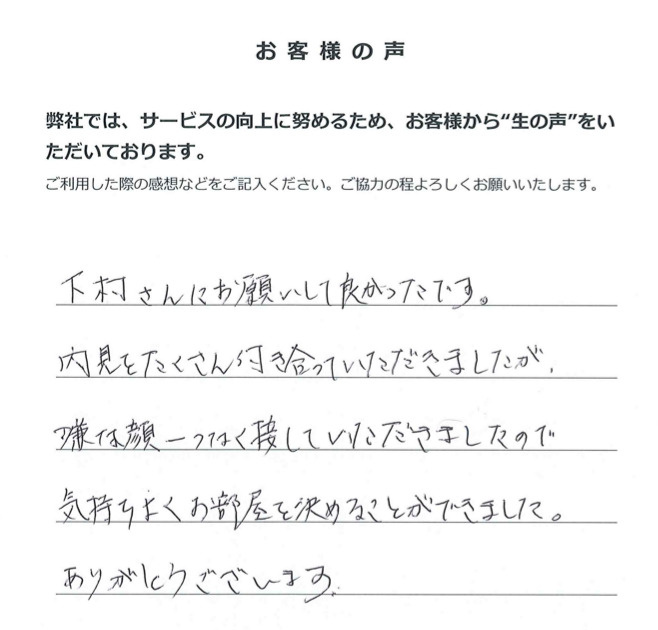 お客様の声
弊社では、サービスの向上に努めるため、お客様から“生の声”をい
ただいております。
ご利用した際の感想などをご記入ください。ご協力の程よろしくお願いいたします。
下村さんにお願いして良かったです。
内見をたくさん付き合っていただきましたが、
嫌な顔一つなく接していただきましたので
気持ちよくお部屋を決めることができました。
ありがとうございます。